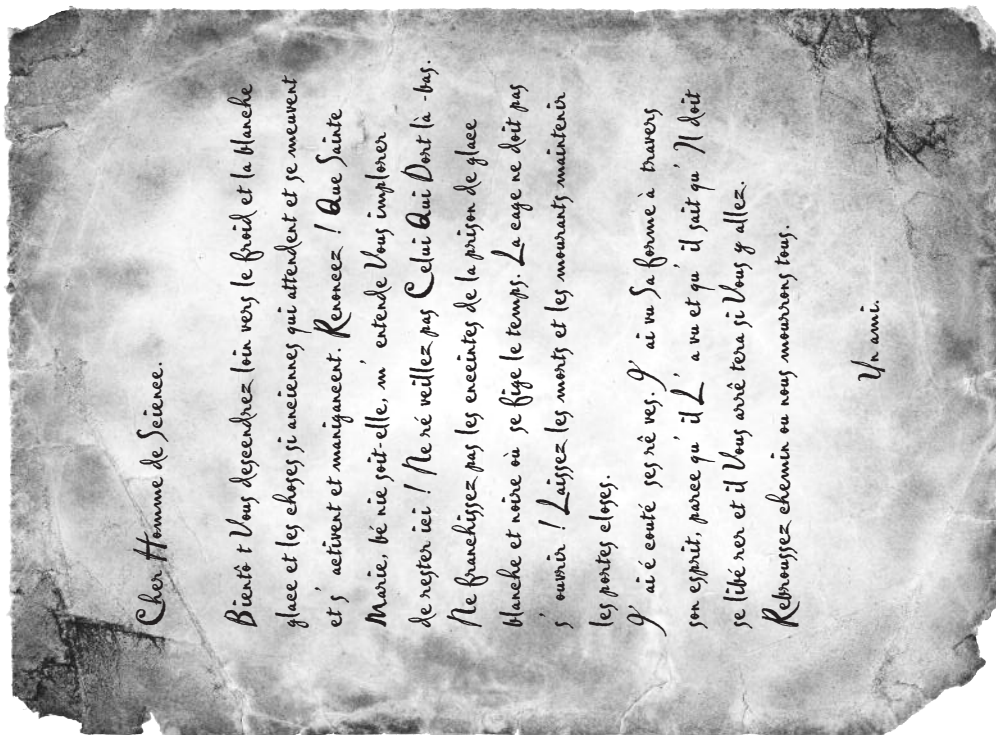 Cher Homme de Science.
Bientôt Vous descendrez loin vers le froid et la blanche
glace et les choses si anciennes qui attendent et se meuvent
et s' activent et manigancent. Renoncez ! Que Sainte
Marie, bé nie soit-elle, m' entende Vous implorer
de rester ici ! Ne ré veillez pas Celui Qui Dort là -bas.
Ne franchissez pas les enceintes de la prison de glace
blanche et noire où se fige le temps. La cage ne doit pas
s' ouvrir ! Laissez les morts et les mourants maintenir
les portes closes.
J' ai é couté ses rê ves. J' ai vu Sa forme à travers
son esprit, parce qu' il L' a vu et qu' il sait qu' Il doit
se libé rer et il Vous arrê tera si Vous y allez.
Rebroussez chemin ou nous mourrons tous.
Un ami.